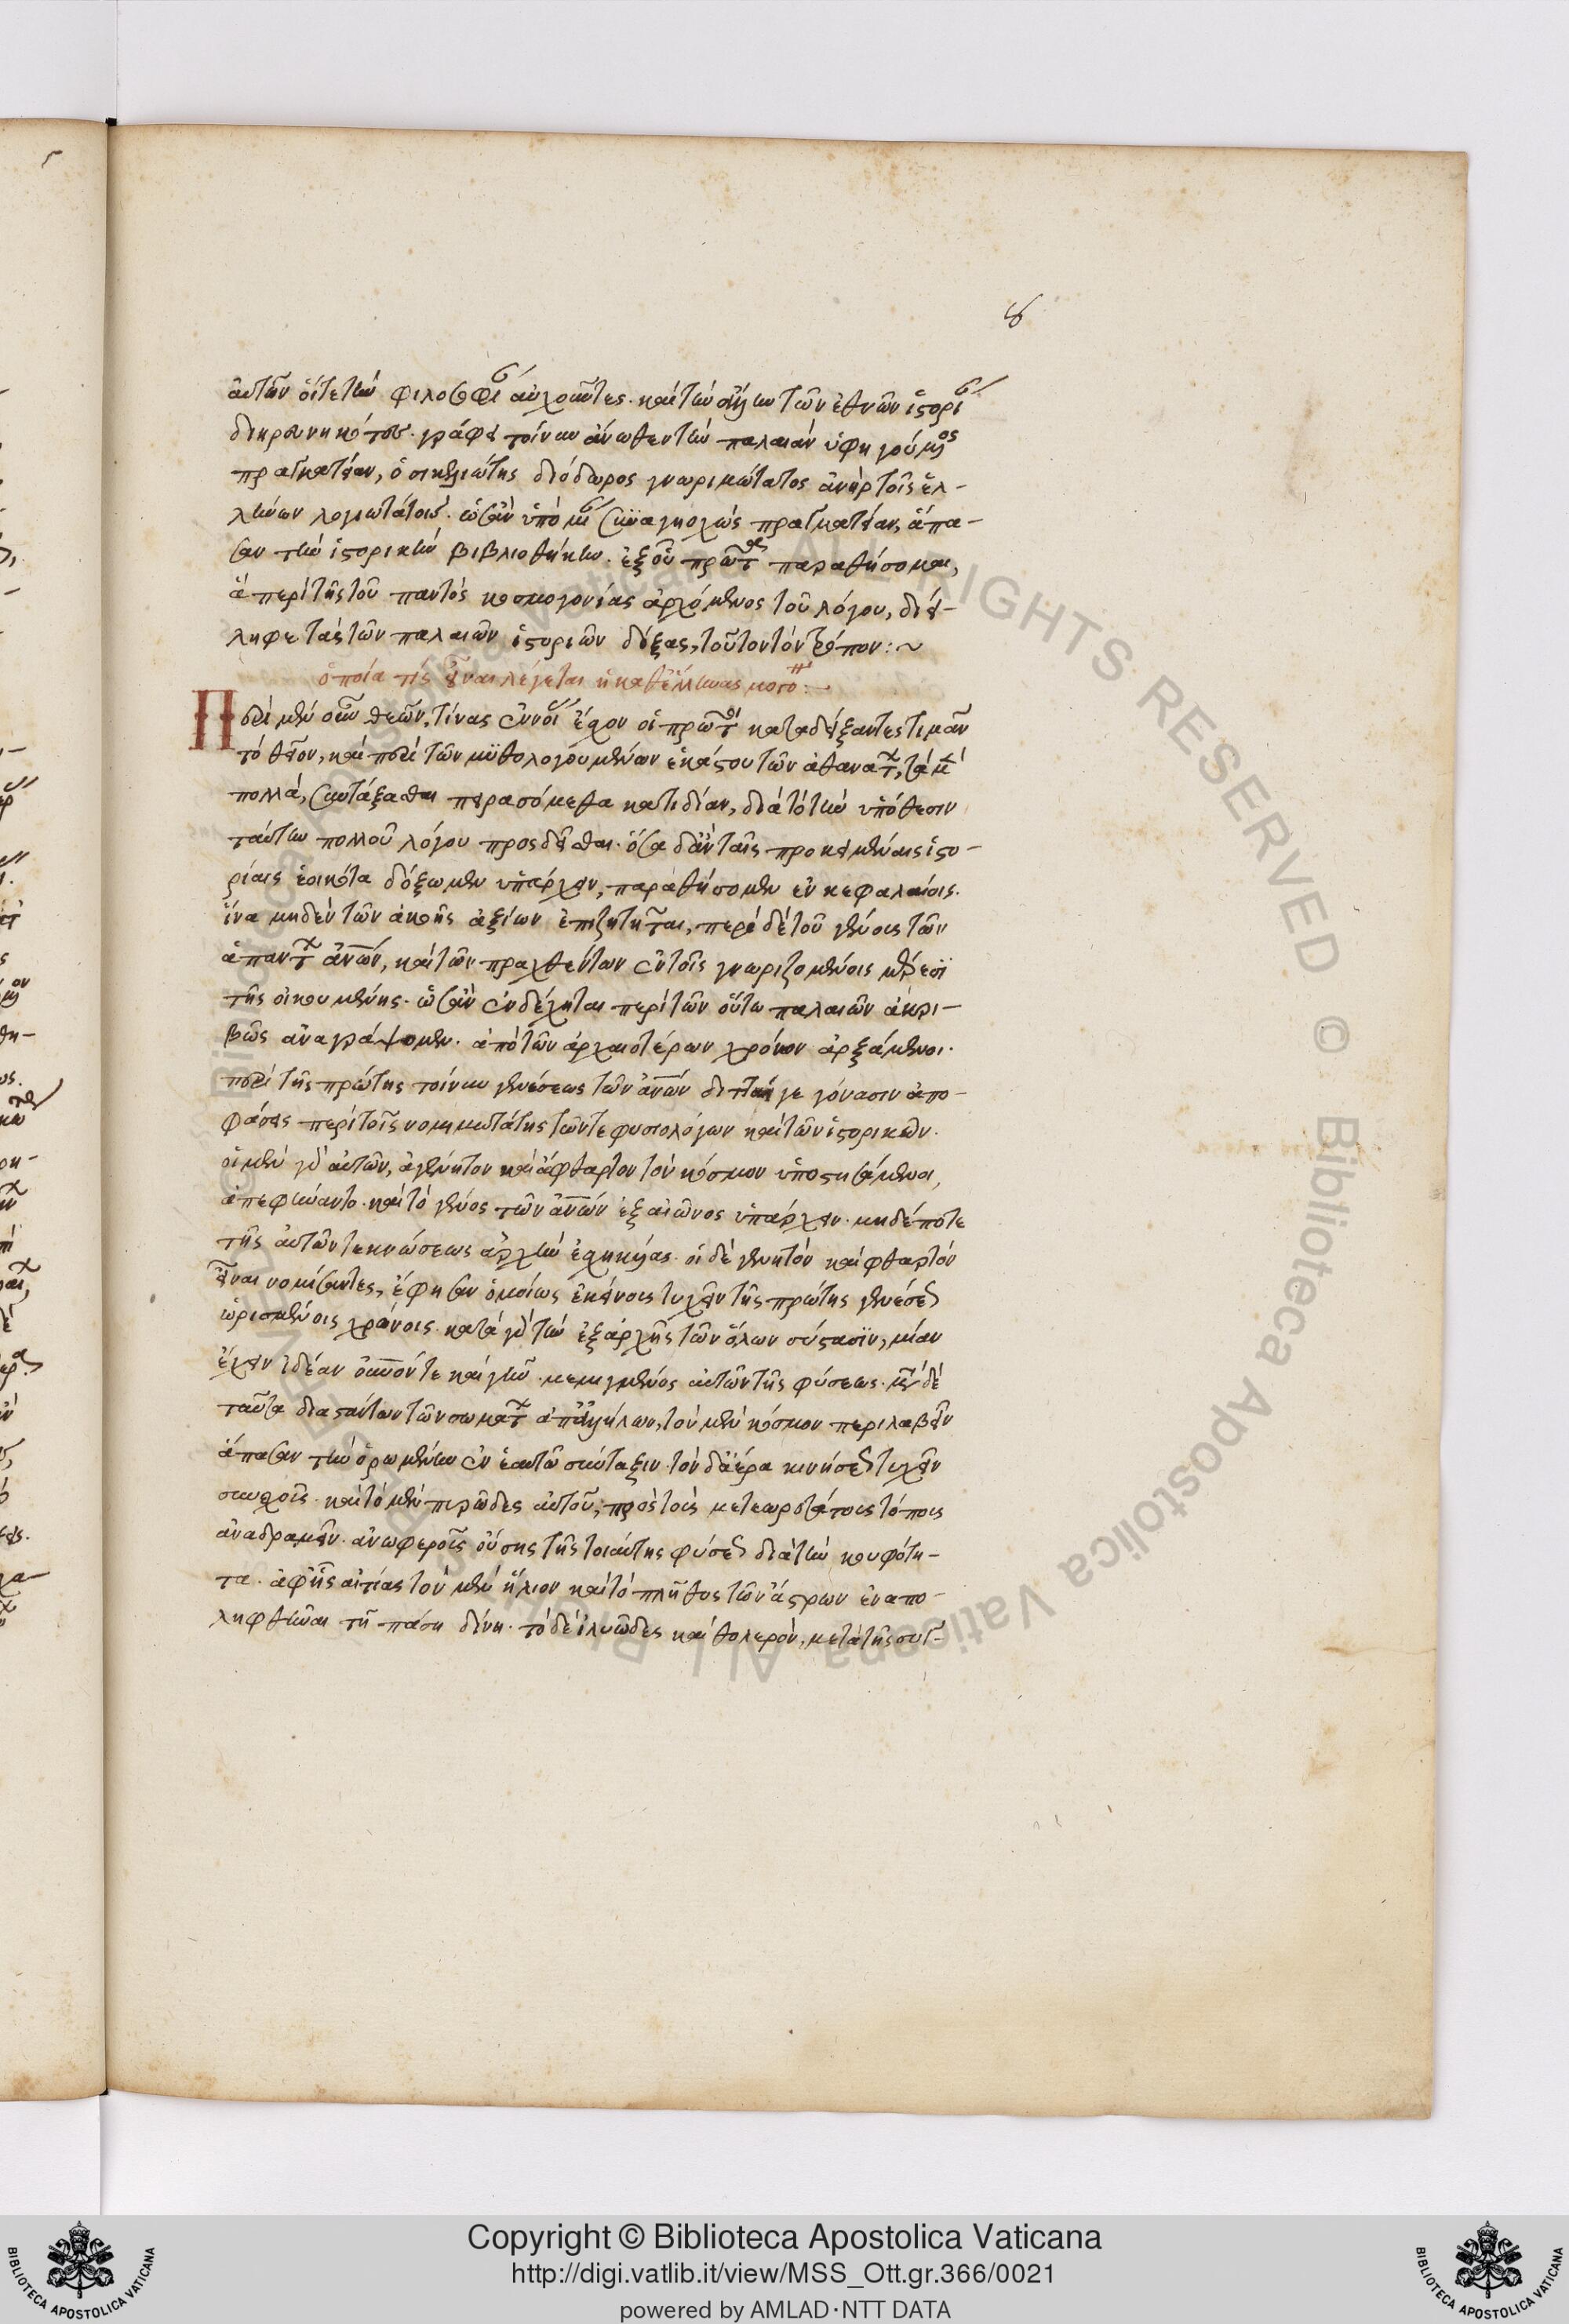 8
αὐτῶν οἵτε τὴν φιλοσοφίαν αὐχοῦντες. καὶ τὴν ἄλλην τῶν ἐθνῶν ἱστορίαν
διηρευνηκότες. γράφει τοίνυν ἄνωθεν τὴν παλαιὰν ὑφηγούμενος
πραγματείαν, ὁ σικελιώτης διόδωρος γνωριμώτατος ἀνὴρ τοῖς ἑλ-
λήνων λογιωτάτοις. ὡσὰν ὑπὸ μίαν συναγηοχὼς πραγματείαν, ἅπα-
σαν τὴν ἱστορικὴν βιβλιοθήκην. ἐξ οὗ πρῶτα παραθήσομαι,
ἃ περὶ τῆς τοῦ παντὸς κοσμογονίας ἀρχόμενος τοῦ λόγου, διεί-
ληφε τὰς τῶν παλαιῶν ἱστοριῶν δόξας, τοῦτον τὸν τρόπον:~
ὁποία τίς εἶναι λέγεται ἡ καθ' ἕλληνας κοσμο:-
Περὶ μὲν οὖν θεῶν, τίνας ἐννοίας ἔσχον οἱ πρῶτοι καταδείξαντες τιμᾶν
τὸ θεῖον, καὶ περὶ τῶν μϋθολογουμένων ἑκάστου τῶν ἀθανάτων, τὰ μὲν
πολλά, συντάξασθαι πειρασόμεθα κατιδίαν, διὰ τὸ τὴν ὑπόθεσιν
ταύτην πολλοῦ λόγου προσδεῖσθαι. ὅσα δ' ἂν ταῖς προκειμέναις ἱστο-
ρίαις ἐοικότα δόξωμεν ὑπάρχειν, παραθήσομεν ἐν κεφαλαίοις.
ἵνα μηδὲν τῶν ἀκοῆς ἀξίων ἐπιζητῆται, περὶ δὲ τοῦ γένους τῶν
ἁπάντων ἀνων, καὶ τῶν πραχθέντων ἐν τοῖς γνωριζομένοις μέρεσϊ
τῆς οἰκουμένης. ὡσὰν ἐνδέχηται περὶ τῶν οὕτω παλαιῶν ἀκρι-
βῶς ἀναγράψομεν. ἀπὸ τῶν ἀρχαιοτέρων χρόνον ἀρξάμενοι.
περὶ τῆς πρώτης τοίνυν γενέσεως τῶν ἀνων διτταὶ γεγόνασιν ἀπο-
φάσεις περὶ τοῖς νομιμωτάτης τῶν τε φυσιολόγων καὶ τῶν ἱστορικῶν.
οἱ μὲν γὰρ αὐτῶν, ἀγένητον καὶ ἄφθαρτον τὸν κόσμον ὑποστησάμενοι,
ἀπεφήναντο. καὶ τὸ γένος τῶν ἀνων ἐξ αἰῶνος ὑπάρχειν. μηδέποτε
τῆς αὐτῶν τεκνώσεως ἀρχὴν ἐσχηκυίας. οἱ δὲ γενητὸν καὶ φθαρτὸν
εἶναι νομίσαντες, ἔφησαν ὁμοίως ἐκείνοις τυχεῖν τῆς πρώτης γενέσεως
ὡρισμένοις χρόνοις. κατὰ γὰρ τὴν ἐξ ἀρχῆς τῶν ὅλων σύστασϊν, μίαν
ἔχειν ἰδέαν οὐνόν τε καὶ γῆν. μεμιγμένος αὐτῶν τῆς φύσεως. μετὰ δὲ
ταῦτα διαστάντων τῶν σωμάτων ἀπ' ἀλλήλων, τὸν μὲν κόσμον περιλαβεῖν
ἅπασαν τὴν ὁρωμένην ἐν ἑαυτῶ σύνταξιν. τὸν δ' ἀέρα κινήσεως τυχεῖν
συνεχοῖς. καὶ τὸ μὲν πυρῶδες αὐτοῦ, πρὸς τοὺς μετεωροτάτους τόπους
ἀναδραμεῖν. ἀνωφεροῖς οὔσης τῆς τοιαύτης φύσεως διὰ τὴν κουφότη-
τα. ἀφ' ἧς αἰτίας τὸν μὲν ἥλιον καὶ τὸ πλῆθος τῶν ἄστρων ἐναπο-
ληφθῆναι τῇ πάση δίνη. τὸ δὲ ἰλυῶδες καὶ θολερὸν, μετὰ τῆς συγ-
Copyright © Biblioteca Apostolica Vaticana
http://digi.vatlib.it/view/MSS_Ott.gr.366/0021
powered by AMLAD·NTT DATA